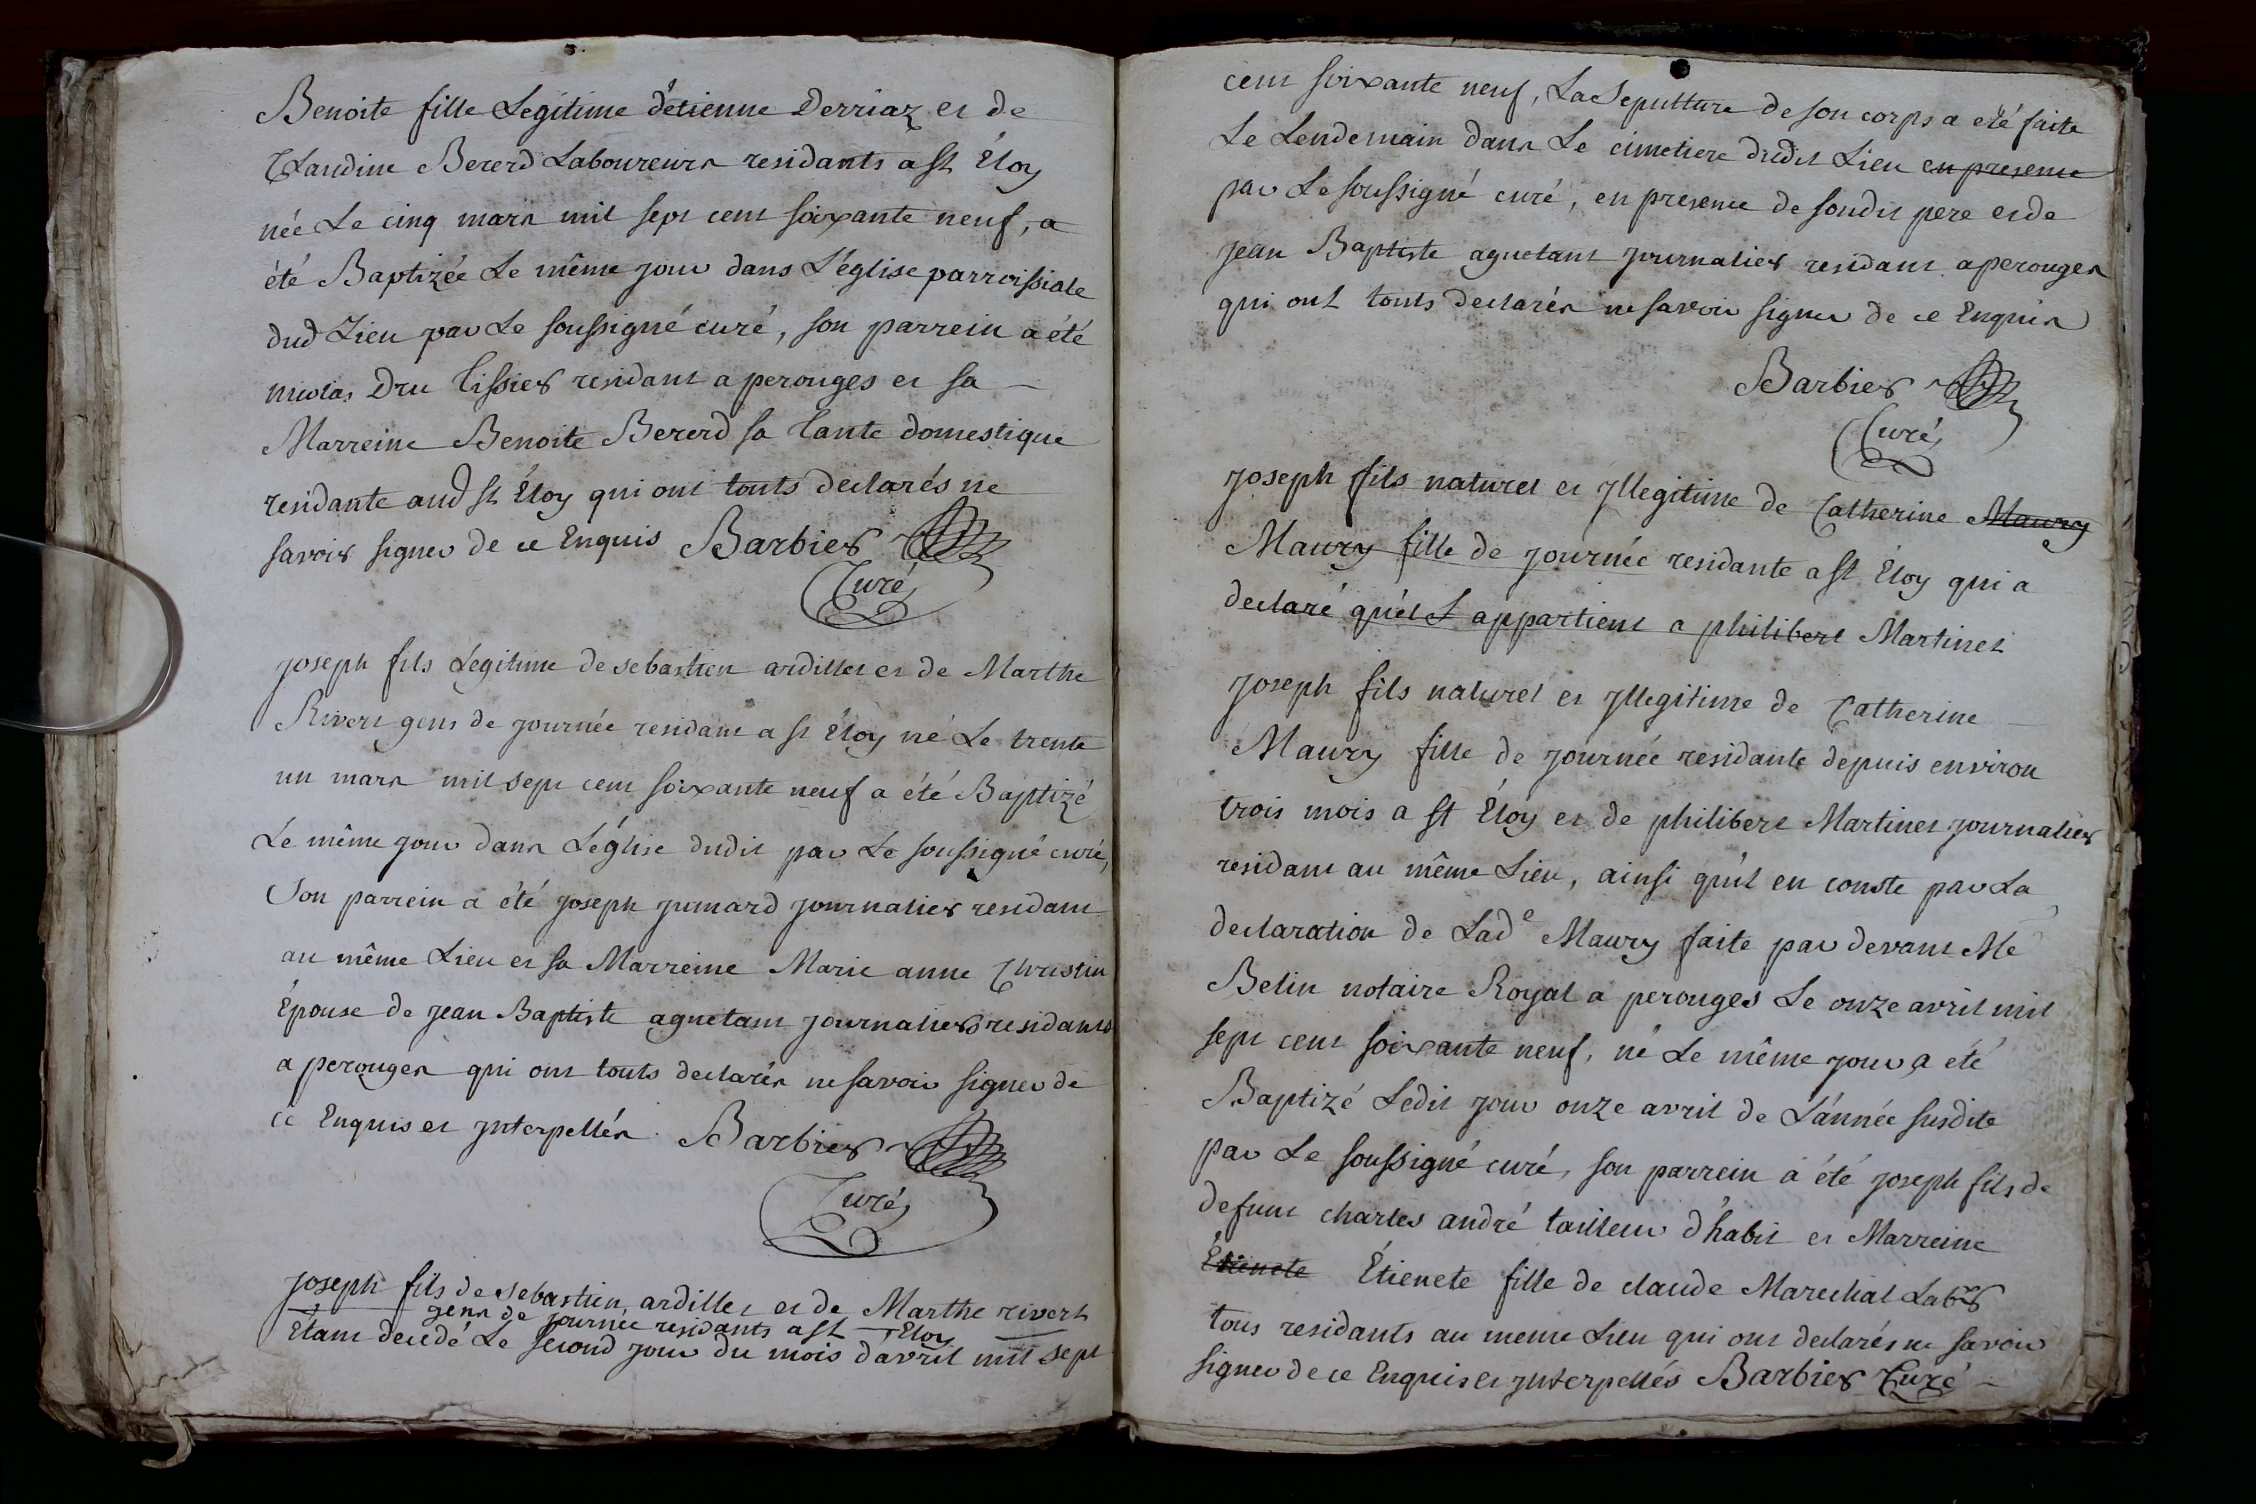 Benoite fille Legitime d'étienne Derriaz et de
Claudine Bererd Laboureurs residants a st Éloy
née Le cinq mars mil sept cent soixante neuf, a
été Baptizée Le même jour dans L'église parroissiale
dud Lieu par Le soussigné curé, son parrein a été
nicolas Dru tissier residant a perouges et sa
Marreine Benoite Bererd sa tante domestique
residante aud st Éloy qui ont touts declarés ne
savoir signer de ce Enquis Barbier
Curé
joseph fils Legitime de sebastien ardillet et de Marthe
Rivert gens de journée residant a st Éloy né Le trente
un mars mil sept cent soixante neuf a été Baptizé
Le même jour dans L'église dudit par Le soussigné curé,
Son parrein a été joseph jumard journalier residant
au même Lieu et sa Marreine Marie anne Christin
Épouse de jean Baptiste aguetant journalier residants
a perouges qui ont touts declarés ne savoir signer de
ce Enquis et jnterpellés. Barbier
Curé
joseph fils de sebastien ardillet et de Marthe rivert
gens de journée residants a st Éloy
Étant decedé Le second jour du mois d'avril mil sept
cent soixante neuf, La Sepulture de son corps a été faite
Le Lendemain dans Le cimetiere dudit Lieu en presence
par Le soussigné curé, en presence de sondit pere et de
jean Baptiste aguetant journalier residant a perouges
qui ont touts declarés ne savoir signer de ce Enquis
Barbier
Curé
joseph fils naturel et jllegitime de Catherine Maury
Maury fille de journée residante a st Éloy qui a
declaré qu'el L appartient a philibert Martinet
joseph fils naturel et jllegitime de Catherine
Maury fille de journée residante depuis environ
trois mois a st Éloy et de philibert Martinet journalier
residant au même Lieu, ainsi qu'il en conste par La
declaration de Lade Maury faite par devant Me
Belin notaire Royal a perouges Le onze avril mil
sept cent soixante neuf, né Le même jour a été
Baptizé Ledit jour onze avril de L'année susdite
par Le soussigné curé, son parrein a été joseph fils de
defunt charles andré tailleur d'habit et Marreine
Étienete Étienete fille de claude Marechal Labr
tous residants au meme Lieu qui ont declarés ne savoir
signer de ce Enquis et jnterpellés Barbier Curé